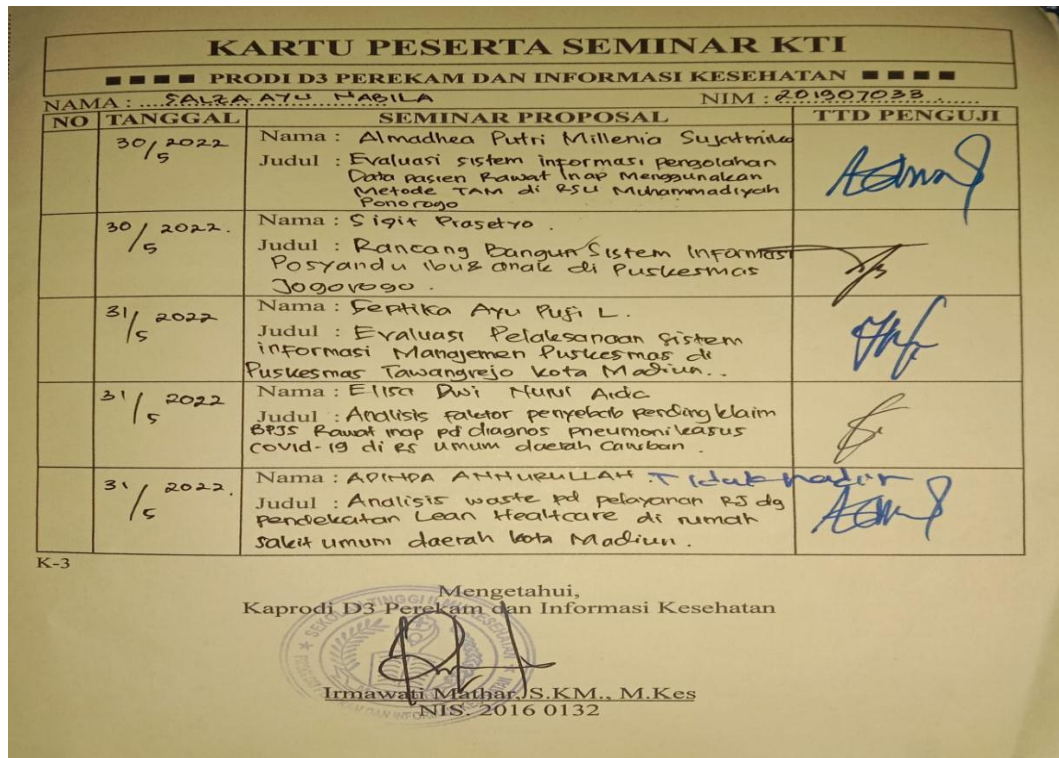 KARTU PESERTA SEMINAR KTI
PRODI D3 PEREKAM DAN INFORMASI KESEHATAN
NAMA : SALZA AYU NABILA NIM : 201907033
NO TANGGAL SEMINAR PROPOSAL TTD PENGUJI
30/5 2022 Nama : Almadhea Putri Millenia Sujatmiko
Judul : Evaluasi sistem informasi pengolahan
Data pasien Rawat Inap Menggunakan
Metode TAM di RSU Muhammadiyah
Ponorogo
30/5 2022. Nama : Sigit Prasetyo .
Judul : Rancang Bangun Sistem Informasi
Posyandu ibu & anak di Puskesmas
Jogorogo .
31/5 2022 Nama : Septika Ayu Puji L.
Judul : Evaluasi Pelaksanaan Sistem
informasi Manajemen Puskesmas di
Puskesmas Tawangrejo kota Madiun..
31/5 2022 Nama : Elisa Dwi Nurul Aida
Judul : Analisis faktor penyebab pending klaim
BPJS Rawat inap pd diagnos pneumoni kasus
covid-19 di RS umum daerah Caruban .
31/5 2022. Nama : ADINDA ANNURULLAH . Tidak hadir
Judul : Analisis waste pd pelayanan RJ dg
pendekatan Lean Healtcare di rumah
sakit umum daerah kota Madiun .
K-3
Mengetahui,
Kaprodi D3 Perekam dan Informasi Kesehatan
Irmawati Mathar, S.KM., M.Kes
NIS. 2016 0132